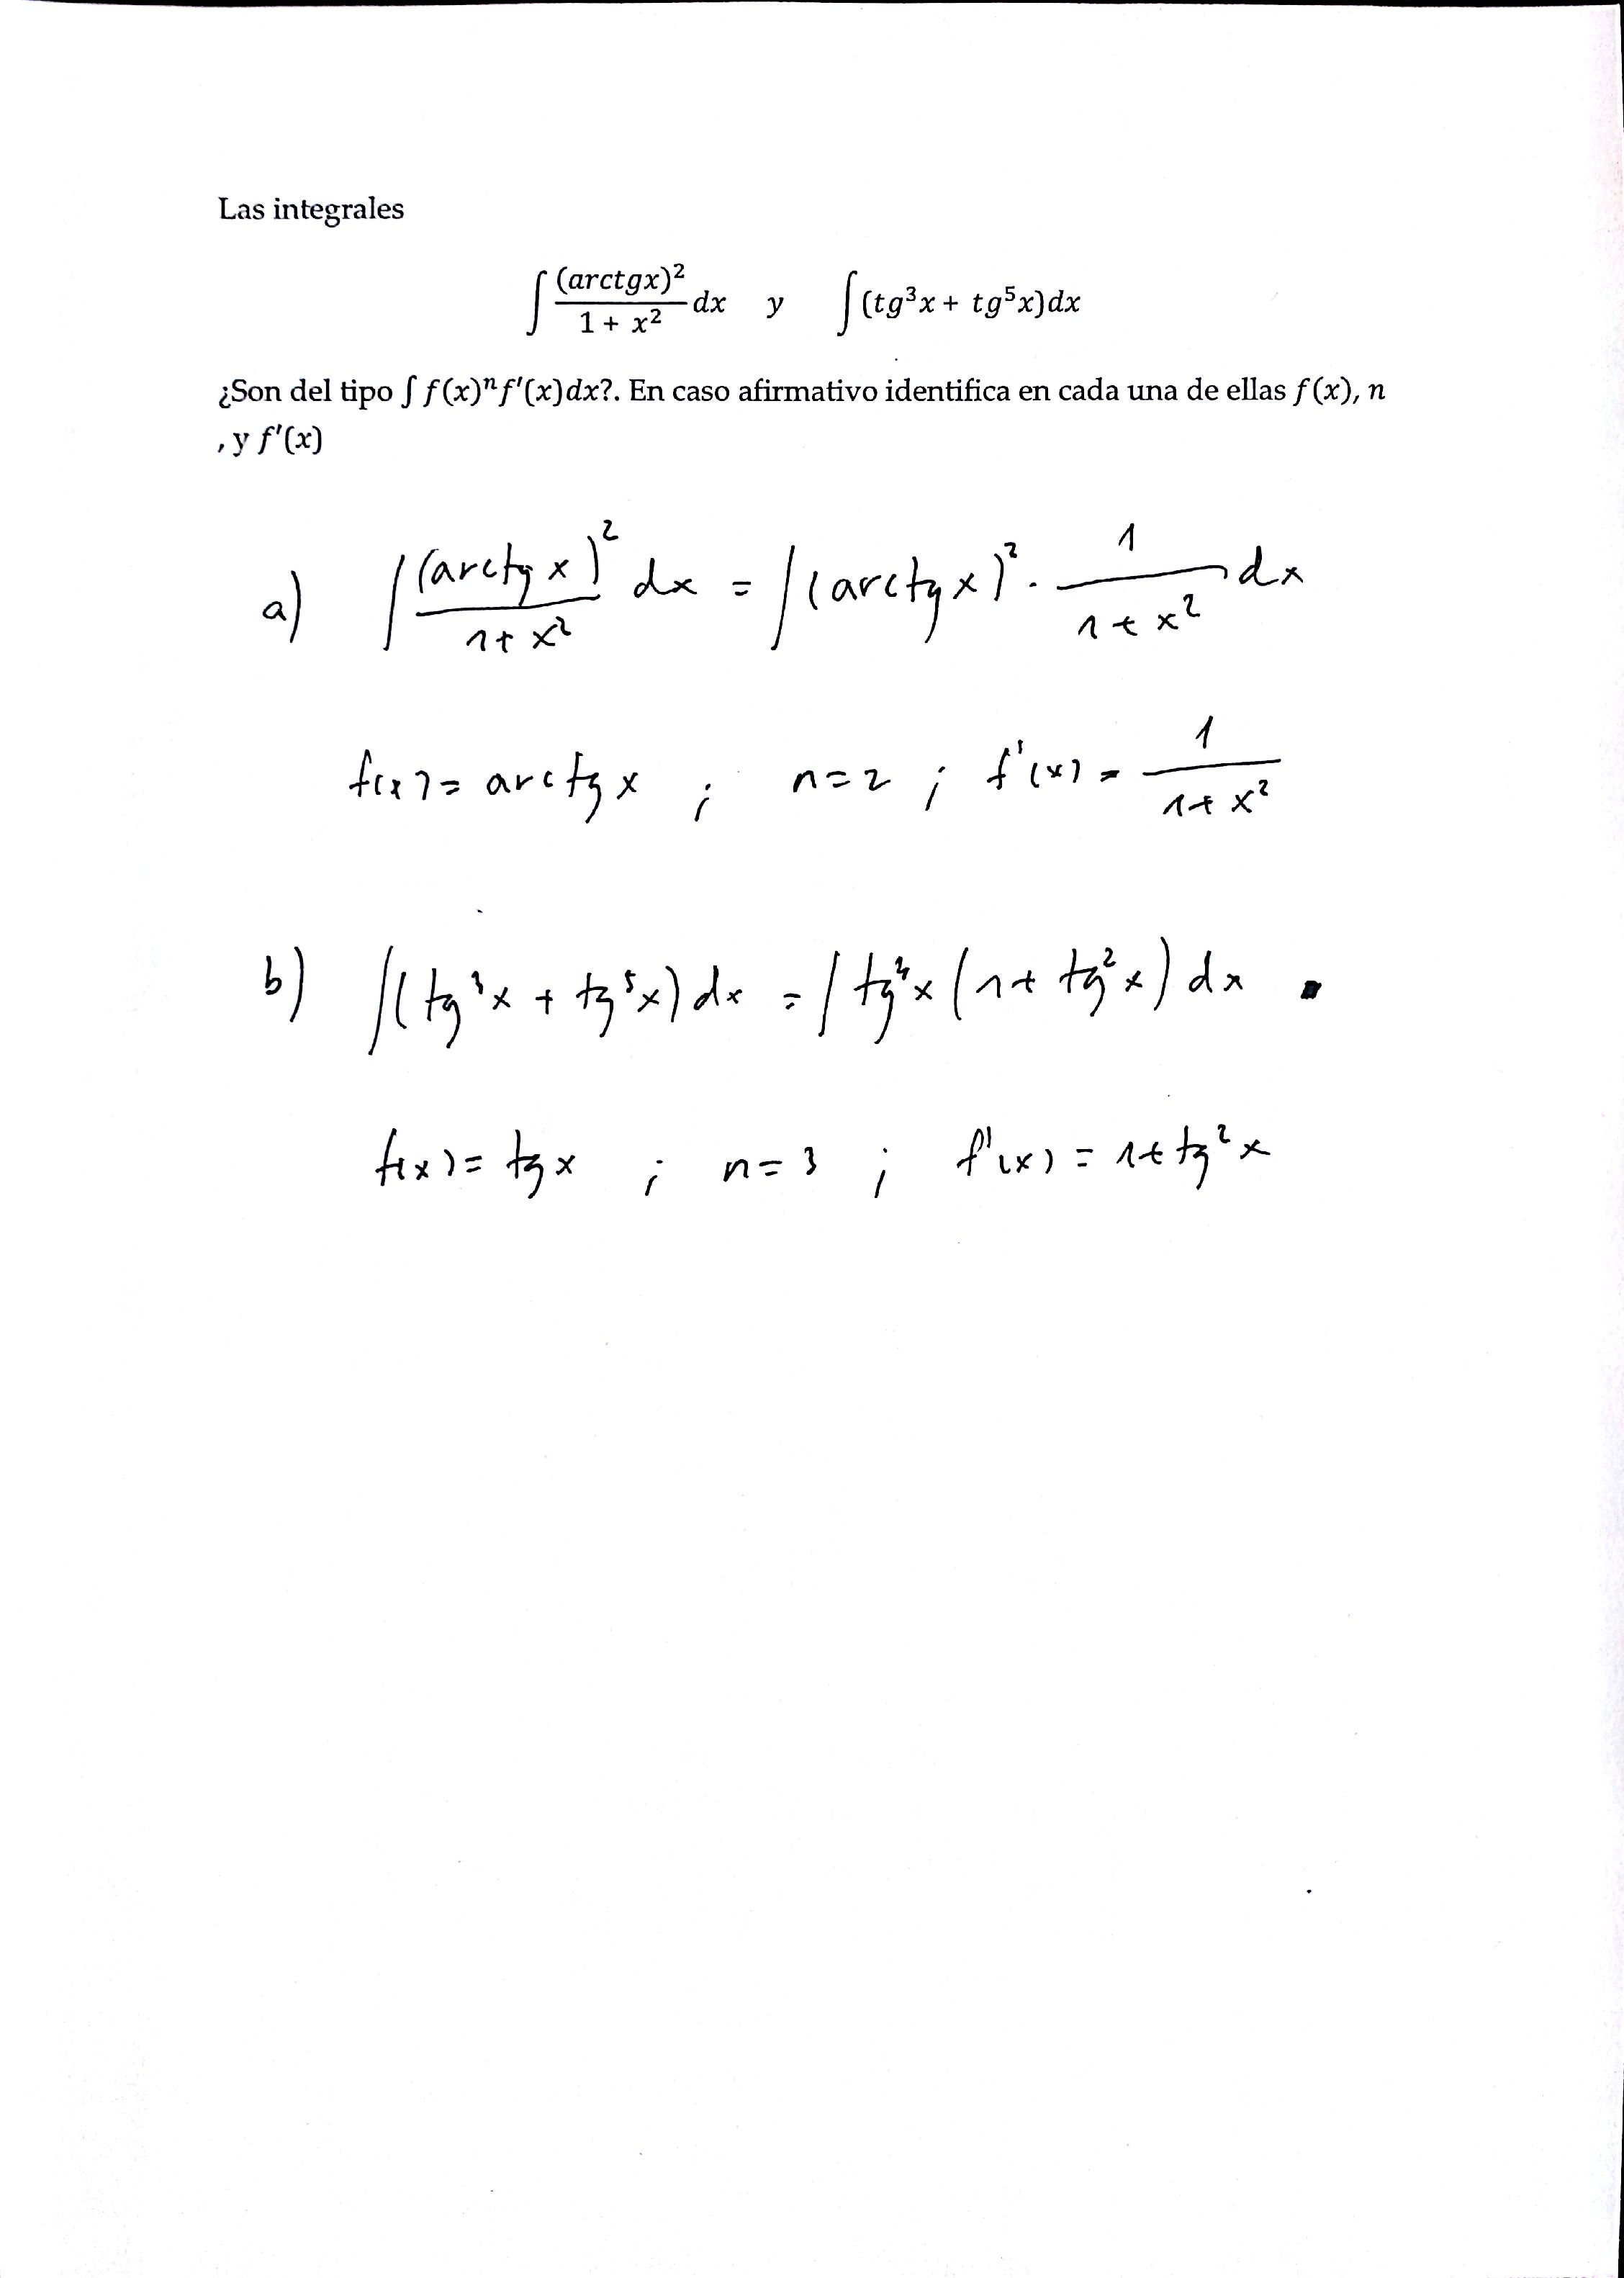 Las integrales
∫ (arctgx)² / (1 + x²) dx y ∫(tg³x + tg⁵x)dx
¿Son del tipo ∫ f(x)ⁿf'(x)dx?. En caso afirmativo identifica en cada una de ellas f(x), n
, y f'(x)
a) ∫ (arctg x)² / (1+ x²) dx = ∫(arctg x)² · 1 / (1+ x²) dx
f(x) = arctg x ; n=2 ; f'(x) = 1 / (1+ x²)
b) ∫(tg³x + tg⁵x) dx = ∫ tg³x (1+ tg²x) dx
f(x) = tg x ; n=3 ; f'(x) = 1+ tg²x